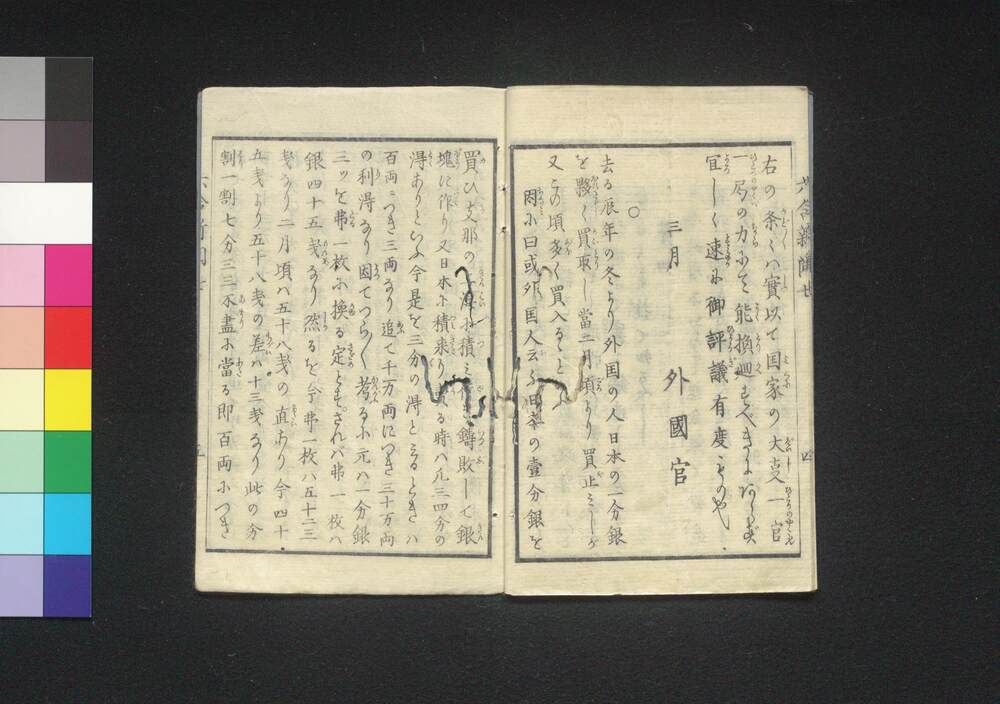 右の条々ハ實以て国家の大事一官
一局の力にて能換廻すべきにあらず
宜しく速に御評議有度ものや
三月
外國官
○
去る辰年の冬より外国の人日本の一分銀
を夥く買取し當二月頃より買止ミしが
又この頃多く買入ると
因に曰或外国人云ふ日本の壹分銀を
買ひ支那の 積 鑄敗して銀
塊に作り又日本に積来り る時ハ凡三四分の
得ありといふ今是を三分の得とみるときハ
百両につき三両なり追て千万両につき三十万両
の利得なり因てつら〳〵考るに元ハ一分銀
三ツを弗一枚に換る定ともされバ弗一枚ハ
銀四十五匁なり然るを今弗一枚ハ五十三
匁なり二月頃ハ五十八匁の直あり今四十
五匁より五十八匁の差ハ十三匁なり此の分
割一割七分三三不盡に當る即百両につき
六合新聞七
四